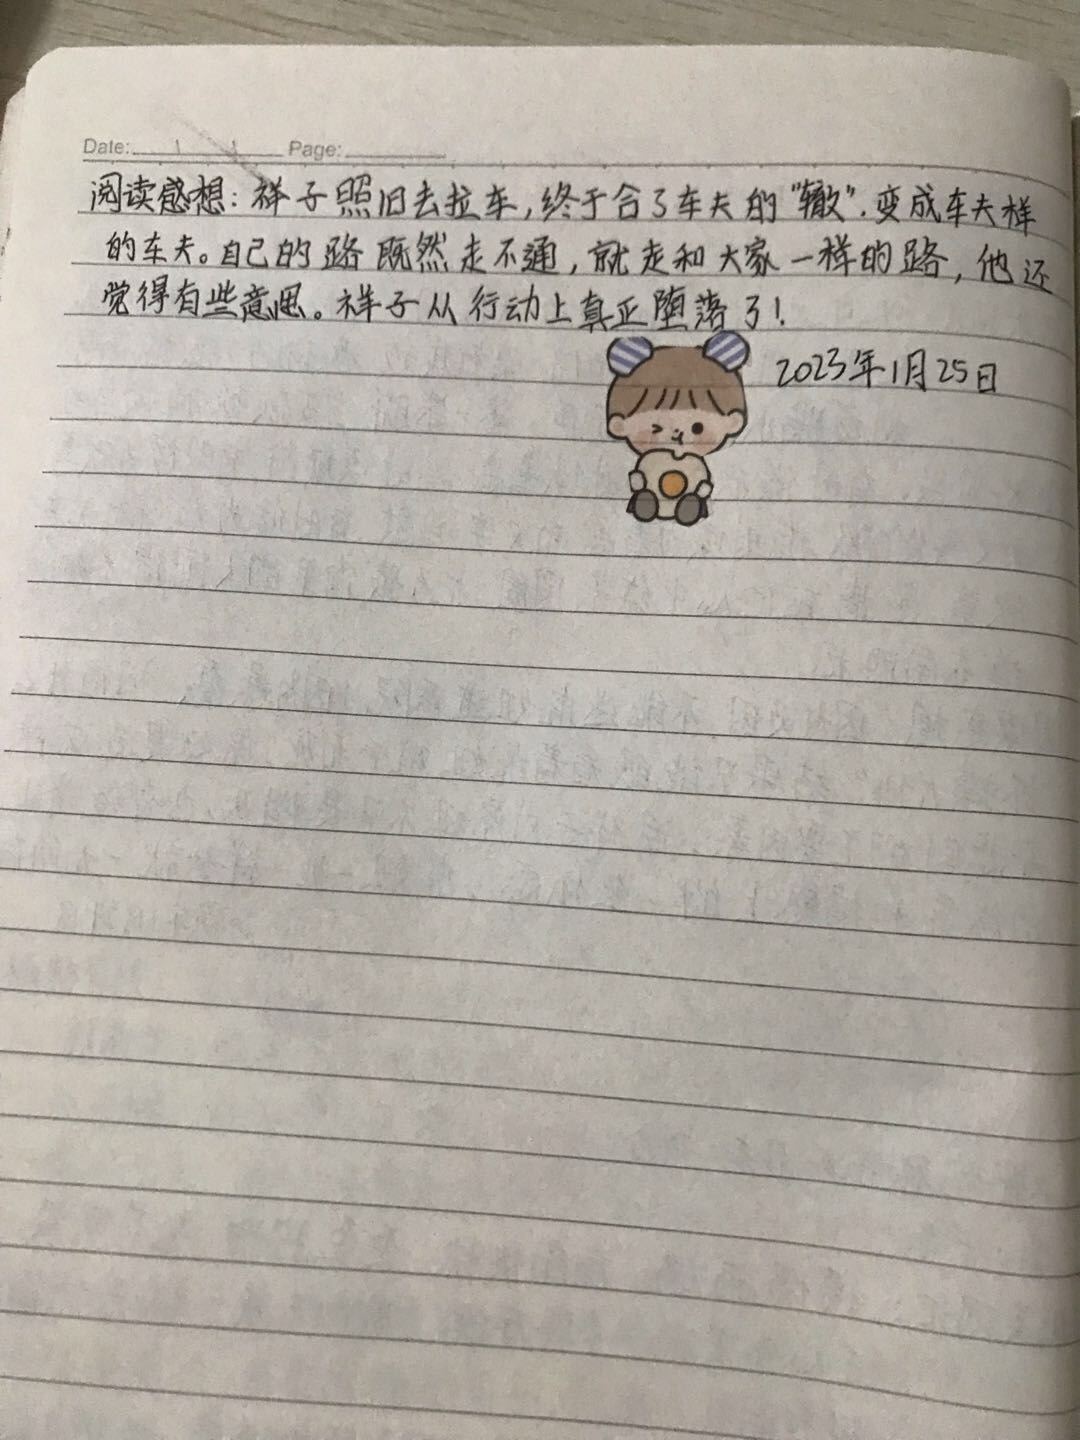 Date: Page:
阅读感想：祥子照旧去拉车，终于合了车夫的“辙”．变成车夫样
的车夫。自己的路既然走不通，就走和大家一样的路，他还
觉得有些意思。祥子从行动上真正堕落了！
2023年1月25日